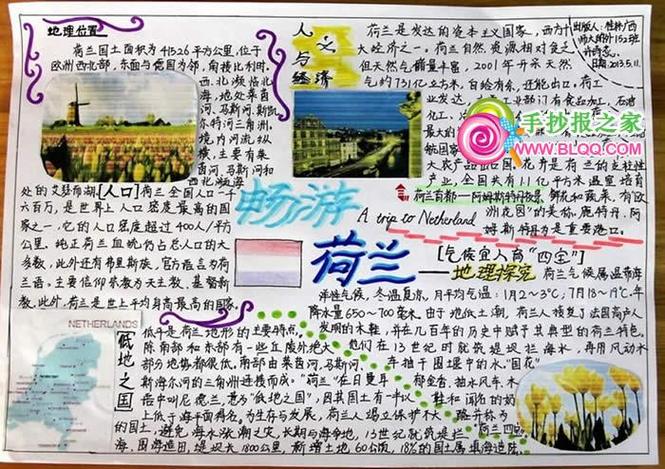 地理位置
荷兰国土面积为41526平方公里,位于
欧洲西北部,东面与德国为邻,南接比利时。
西、北濒临北
海,地处莱茵
河、马斯河、斯凯
尔特河三角洲。
境内河流纵
横,主要有莱
茵河、马斯河和
西北濒海
处的艾瑟尔湖。
[人口]
荷兰全国人口一千
六百万,是世界上人口密度最高的国
家之一,它的人口密度超过400人/平方
公里。纯正荷兰血统仍占总人口的大
多数,此外还有弗里斯族,官方语言为荷
兰语。主要信仰宗教为天主教、基督新
教,此外,荷兰是世上平均身高最高的国家。
人文
与
经济
荷兰是发达的资本主义国家,西方十
大经济之一。荷兰自然资源相对贫乏,
但天然气储量丰富,2001年开采天然
气约731亿立方米,自给有余,还能出口。荷兰工
业发达,主要工业部门有食品加工、石油
化工、
最大的
航国家
大农产品出口国,花卉是荷兰的支柱性
产业,全国共有1.1亿平方米温室培育
鲜花和蔬菜,有“欧
洲花园”的美称,鹿特丹、阿
姆斯特丹为是重要港口。
荷兰首都——阿姆斯特丹夜景
出版人:桂林广西
师大附外152班
日期:2013.5.11.
手抄报之家
WWW.BLQQ.COM
畅游
荷兰
A trip to Netherland
[气候宜人离“四宝”]
——地理探究
荷兰气候属温带海
洋性气候,冬温夏凉,月平均气温:1月2~3℃,7月18~19℃.年
降水量650~700毫米.由于地低土潮,荷兰人接受了法国高卢人
发明的木鞋,并在几百年的历史中赋予其典型的荷兰特色。
他们在13世纪时就筑堤坝拦海水,再用风动水
车抽干围堰中的水.“国花”
郁金香、抽水风车、木
鞋和闻名的奶
酪并称为
荷兰四宝
NETHERLANDS
低地之国
低平是荷兰地形的主要特点,
除南部和东部有一些丘陵外绝大
部分地势都很低。南部由莱茵河、马斯河、
斯海尔河的三角洲连接而成。“荷兰”在日耳曼
语中叫尼德兰,意为“低地之国”,因其国土有一半以
上低于海平面得名。为生存与发展,荷兰人竭立保护不大
的国土,避免海水涨潮之灾,长期与海争地,13世纪就筑堤拦
海,围海造田,堤坝长1800公里,新增土地60公顷,18%的国土属填海造陆。